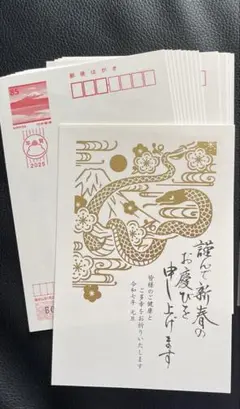 郵便はがき
85
年賀
2025
謹んで新春の
お慶びを
申し上げます
皆様のご健康と
ご多幸をお祈りいたします
令和七年 元旦